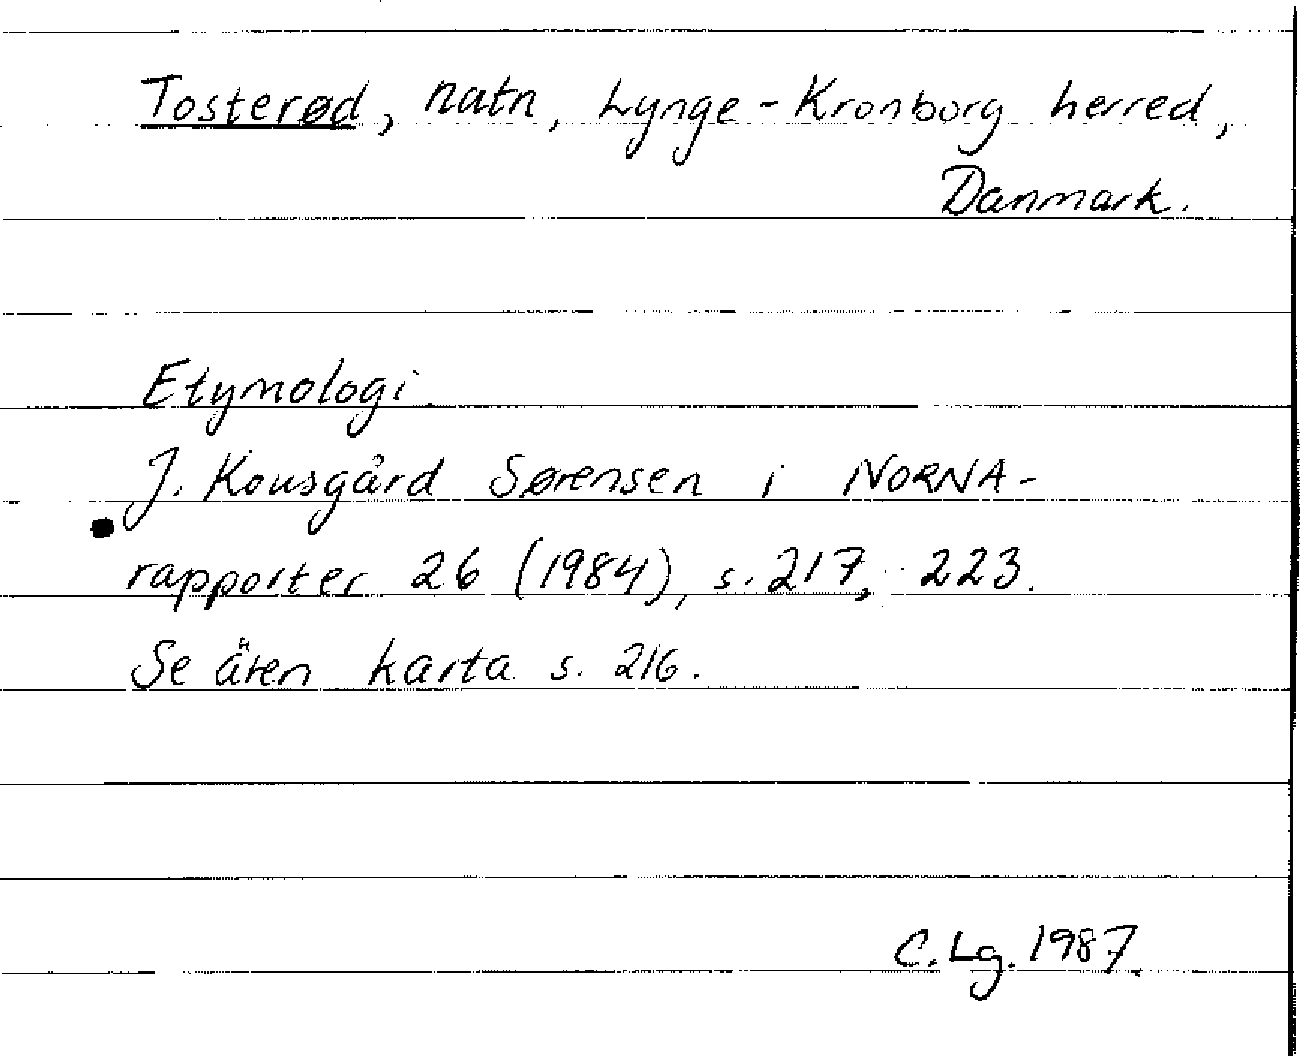 Tosterød, natn, Lynge-Kronborg herred,
Danmark.
Etymologi.
J. Kousgård Sørensen i NORNA-
rapporter 26 (1984), s. 217, 223.
Se även karta s. 216.
C. Lg. 1987.